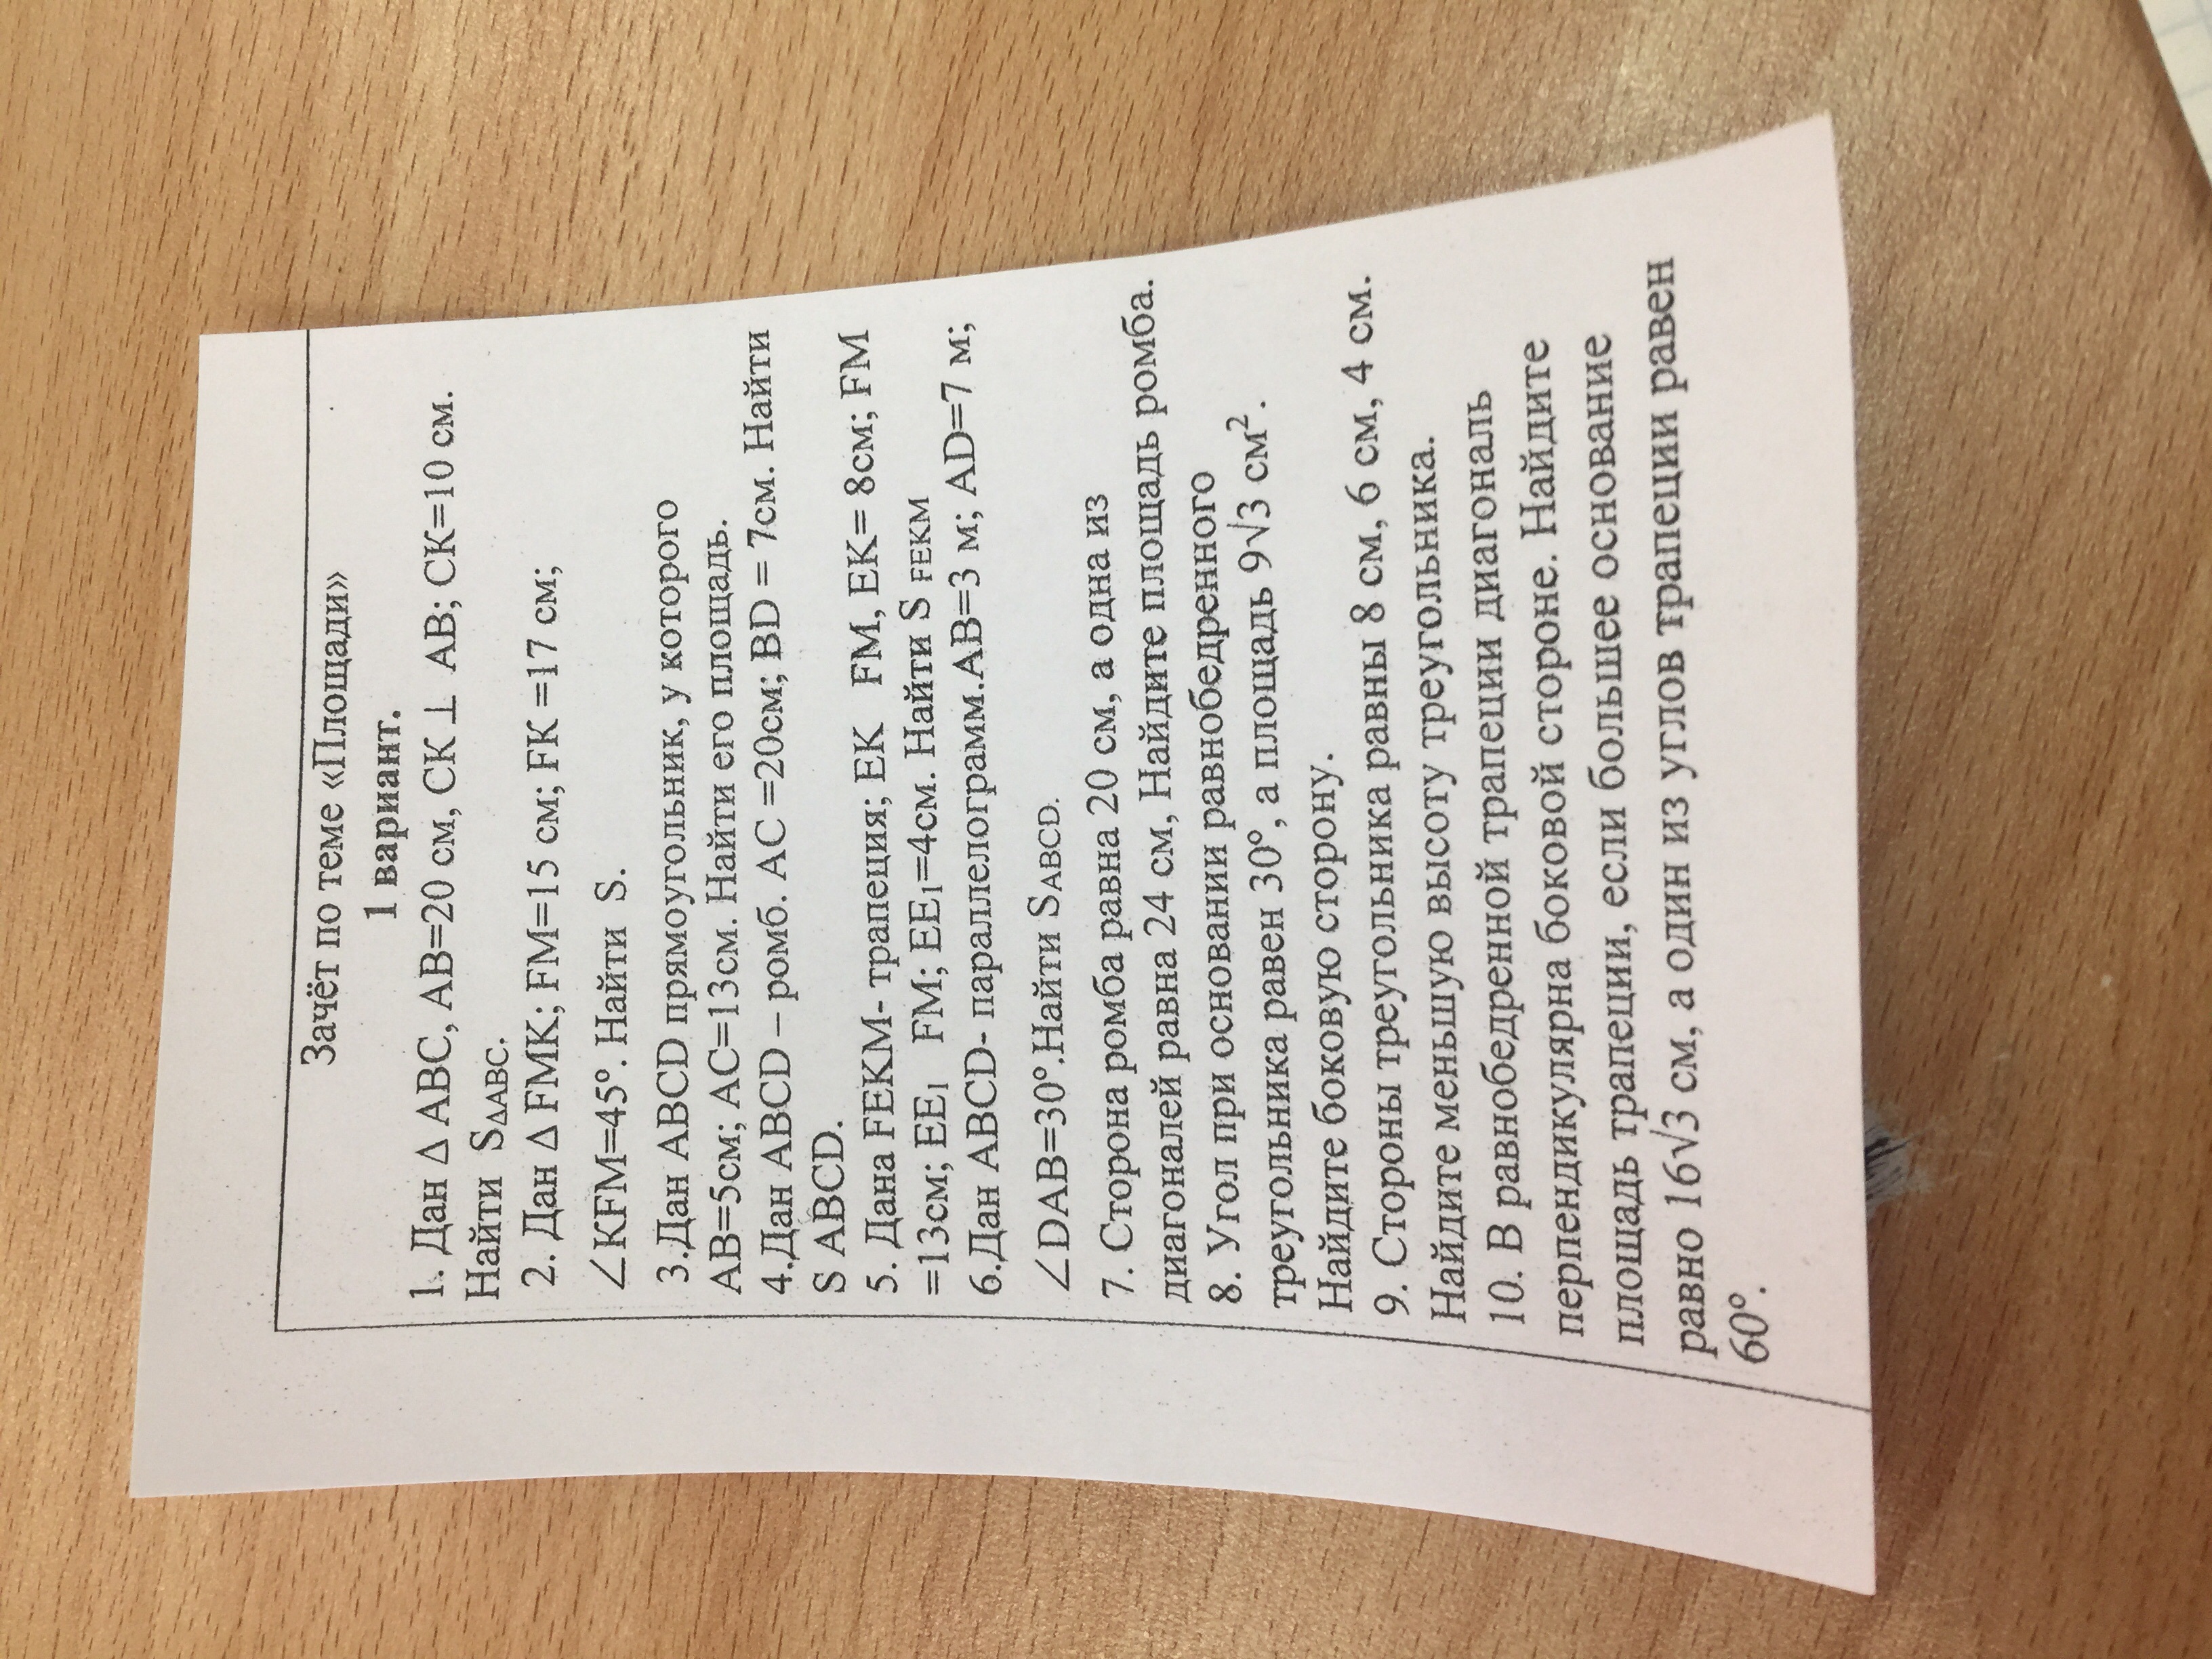 Зачёт по теме «Площади»
1 вариант.
1. Дан Δ ABC, AB=20 см, CK ⊥ AB; CK=10 см.
Найти SΔABC.
2. Дан Δ FMK; FM=15 см; FK =17 см;
∠KFM=45°. Найти S.
3.Дан ABCD прямоугольник, у которого
AB=5см; AC=13см. Найти его площадь.
4.Дан ABCD – ромб. AC =20см; BD = 7см. Найти
S ABCD.
5. Дана FEKM- трапеция; EK FM, EK= 8см; FM
=13см; EE₁ FM; EE₁=4см. Найти S FEKM
6.Дан ABCD- параллелограмм.AB=3 м; AD=7 м;
∠DAB=30°.Найти SABCD.
7. Сторона ромба равна 20 см, а одна из
диагоналей равна 24 см, Найдите площадь ромба.
8. Угол при основании равнобедренного
треугольника равен 30°, а площадь 9√3 см².
Найдите боковую сторону.
9. Стороны треугольника равны 8 см, 6 см, 4 см.
Найдите меньшую высоту треугольника.
10. В равнобедренной трапеции диагональ
перпендикулярна боковой стороне. Найдите
площадь трапеции, если большее основание
равно 16√3 см, а один из углов трапеции равен
60°.